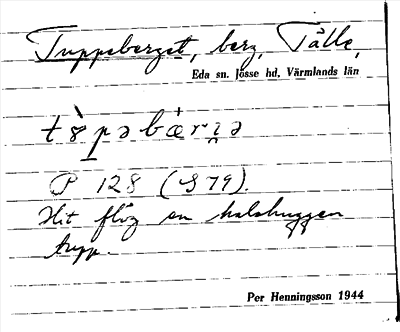 Tuppeberget, berg, Tålle,
Eda sn. Jösse hd. Värmlands län
P 128 (S 79).
Hit flög en halshuggen
tupp.
Per Henningsson 1944